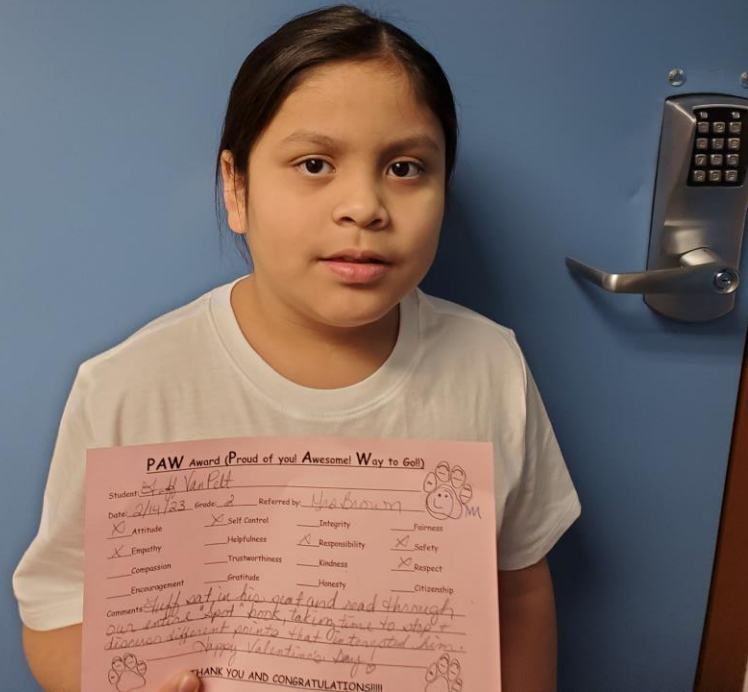 PAW Award (Proud of you! Awesome! Way to Go!!)
Student: VanPelt
Date: 2/14/23 Grade: 2 Referred by: Mrs Brown
X Attitude X Self Control Integrity Fairness
X Empathy Helpfulness X Responsibility X Safety
Compassion Trustworthiness Kindness X Respect
Encouragement Gratitude Honesty Citizenship
Comments: sat in his seat and read through
our entire "Spot" book, taking time to stop &
discuss different points that interested him.
Happy Valentine's Day
THANK YOU AND CONGRATULATIONS!!!!!